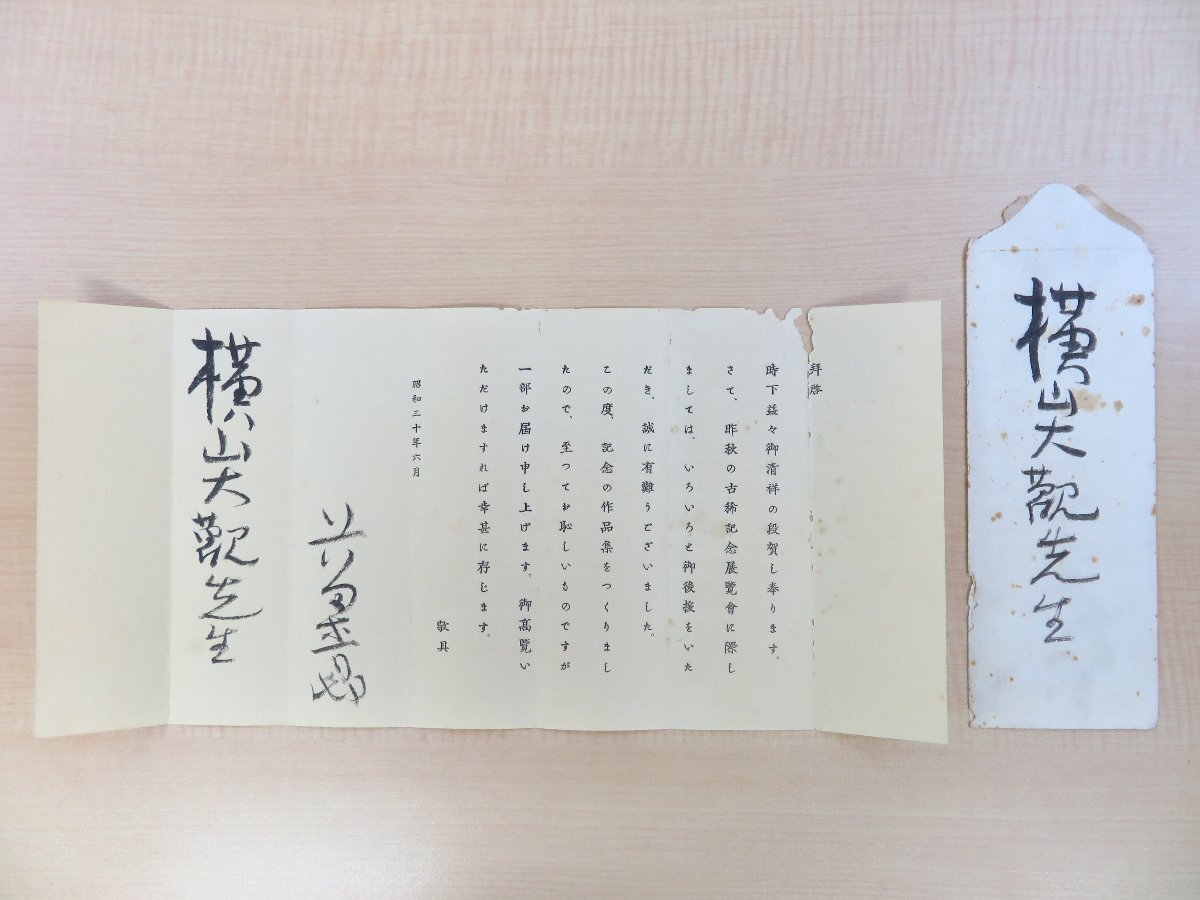 拝啓
時下益々御清祥の段賀し奉ります。
さて、昨秋の古稀記念展覽會に際し
ましては、いろいろと御後援をいた
だき、誠に有難うございました。
この度、記念の作品集をつくりまし
たので、至つてお恥しいものですが
一部お届け申し上げます。御高覽い
ただけますれば幸甚に存じます。
敬具
昭和三十年六月
横山大觀先生
横山大觀先生